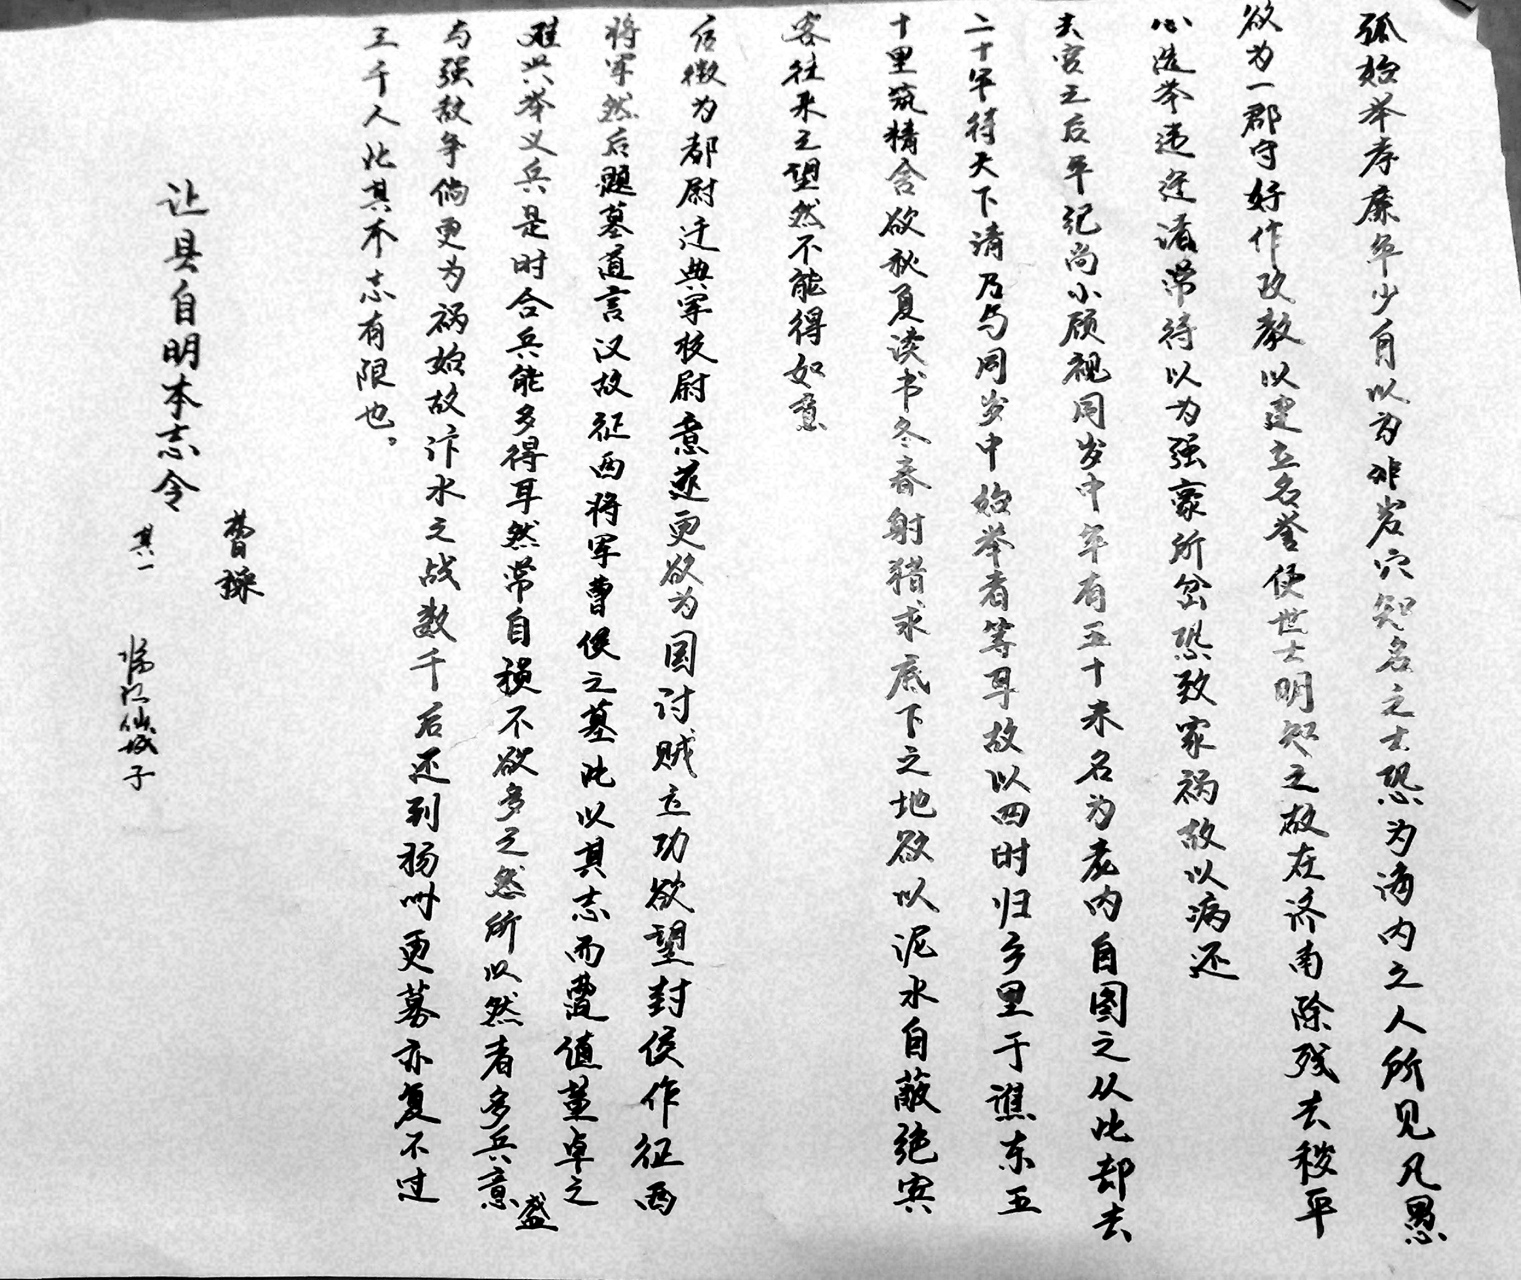 孤始举孝廉年少自以为非岩穴知名之士恐为海内之人所见凡愚
欲为一郡守好作政教以建立名誉使世士明知之故在济南除残去秽平
心选举违迕诸常待以为强豪所忿恐致家祸故以病还
去官之后年纪尚少顾视同岁中年有五十未名为老内自图之从此却去
二十年待天下清乃与同岁中始举者等耳故以四时归乡里于谯东五
十里筑精舍欲秋夏读书冬春射猎求底下之地欲以泥水自蔽绝宾
客往来之望然不能得如意
后徵为都尉迁典军校尉意遂更欲为国讨贼立功欲望封侯作征西
将军然后题墓道言汉故征西将军曹侯之墓此以其志而遭值董卓之
难兴举义兵是时合兵能多得耳然常自损不欲多之然所以然者多兵意盛
与强敌争倘更为祸始故汴水之战数千后还到扬州更募亦复不过
三千人此其本志有限也。
让县自明本志令
曹操
其一
临江仙城子